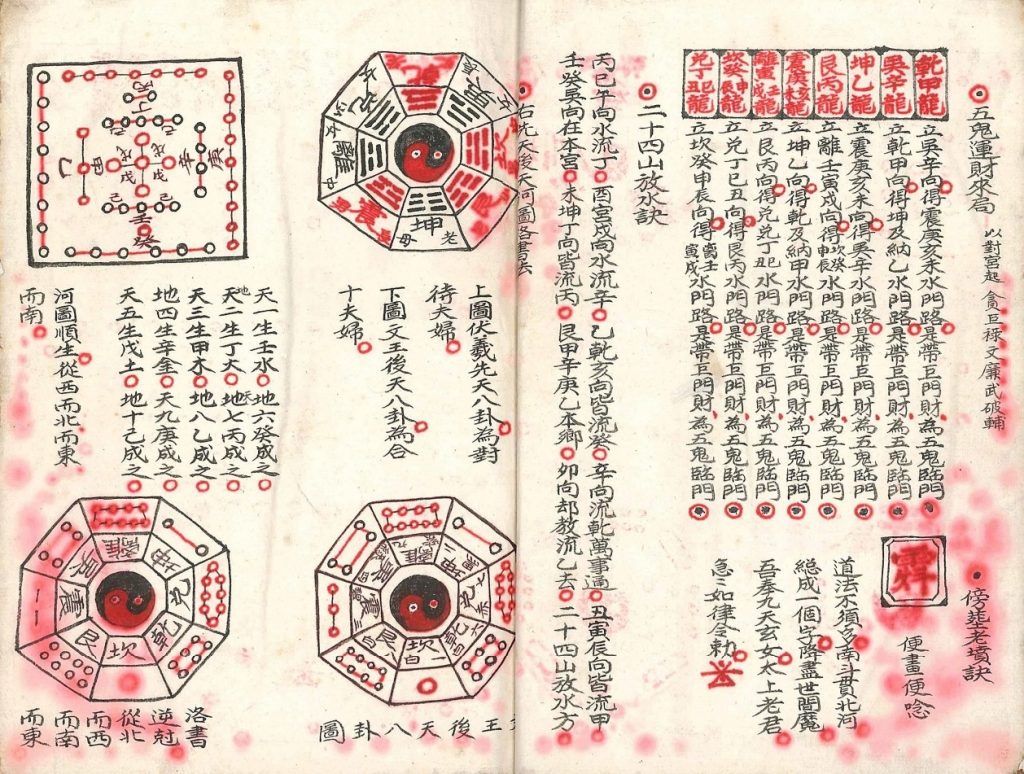 五鬼運財來局 以對宮起 貪巨祿文廉武破輔
乾甲龍 立巽辛向得震庚亥未水門路是帶巨門財為五鬼臨門
巽辛龍 立乾甲向得坤及納乙水門路是帶巨門財為五鬼臨門
坤乙龍 立震庚亥未向得巽辛水門路是帶巨門財為五鬼臨門
艮丙龍 立離壬寅戌向得坎癸申辰水門路是帶巨門財為五鬼臨門
震庚亥未龍 立坤乙向得乾及納甲水門路是帶巨門財為五鬼臨門
離寅壬戌龍 立艮丙向得兌丁巳丑水門路是帶巨門財為五鬼臨門
癸申辰龍 立兌丁巳丑向得艮丙水門路是帶巨門財為五鬼臨門
兌丁巳丑龍 立坎癸申辰向得離壬寅戌水門路是帶巨門財為五鬼臨門
傍塟老墳訣
便畫便唸
道法不須多南斗貫北河
總成一個字降盡世間魔
吾奉九天玄女太上老君
急三如律令勅
二十四山放水訣
丙巳午向水流丁 酉宮戌向水流辛 乙乾亥向皆流癸 辛向流乾萬事通 丑寅辰向皆流甲
壬癸巽向在本宮 未坤丁向皆流丙 艮甲辛庚乙本鄉 卯向却教流乙去 二十四山放水方
右先天後天河圖各書去
乾
巽
坎
艮
坤
老母
震
離
中
上圖伏羲先天八卦為對
待夫婦
下圖文王後天八卦為合
十夫婦
丁
己
戊
甲
乙
辛
庚
壬
癸
天一生壬水 地六癸成之
地二生丁火 天七丙成之
天三生甲木 地八乙成之
地四生辛金 天九庚成之
天五生戊土 地十己成之
河圖順生從西而北而東
而南
離
坤
兌
乾
坎
艮
震
巽
離
坤
兌
乾
坎
一白
艮
震
巽
王後天八卦圖
洛書
逆尅
從北
而西
而南
而東